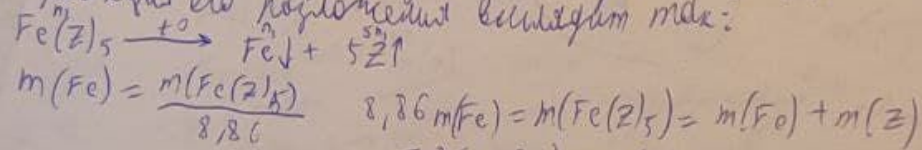 разложения выглядит так:
Fe(Z)₅ —+Q→ Fe↓ + 5Z↑
m(Fe) = m(Fe(Z)₅) / 8,86   8,86 m(Fe) = m(Fe(Z)₅) = m(Fe) + m(Z)